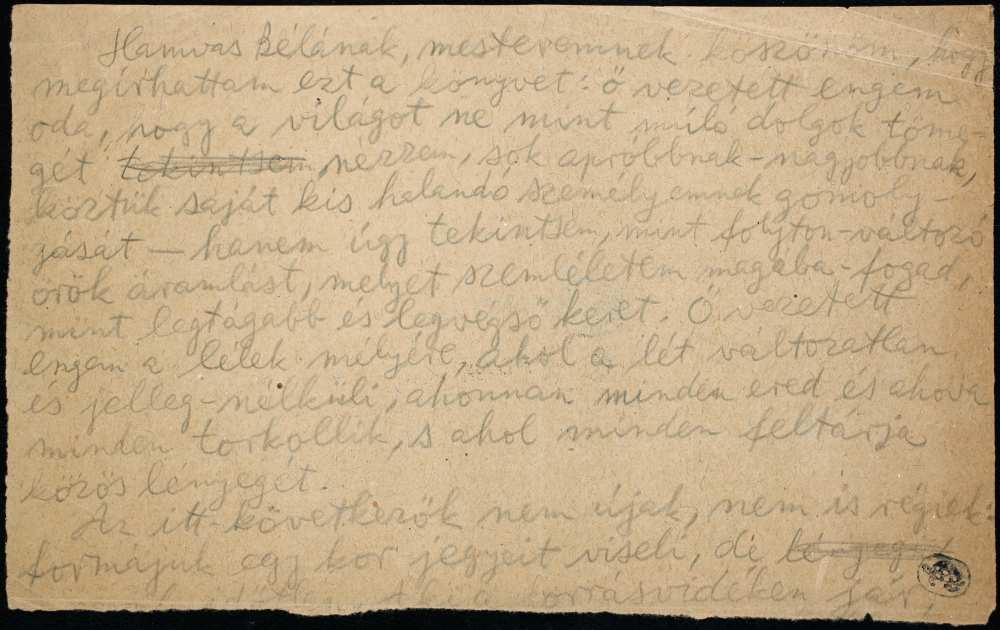 Hamvas Bélának, mesteremnek köszönöm, hogy
megírhattam ezt a könyvet: ő vezetett engem
oda, hogy a világot ne mint múló dolgok töme-
gét tekintsem, nézzem, sok apróbbnak-nagyobbnak,
köztük saját kis halandó személyemnek gomoly-
gását — hanem úgy tekintsem, mint folyton-változó
örök áramlást, melyet szemléletem magába-fogad,
mint legtágabb és legvégső keret. Ő vezetett
engem a lélek mélyére, ahol a lét változatlan
és jelleg-nélküli, ahonnan minden ered és ahova
minden torkollik, s ahol minden feltárja
közös lényegét.
Az itt-következők nem újak, nem is régiek:
formájuk egy kor jegyeit viseli, de
forrásvidéken jár,